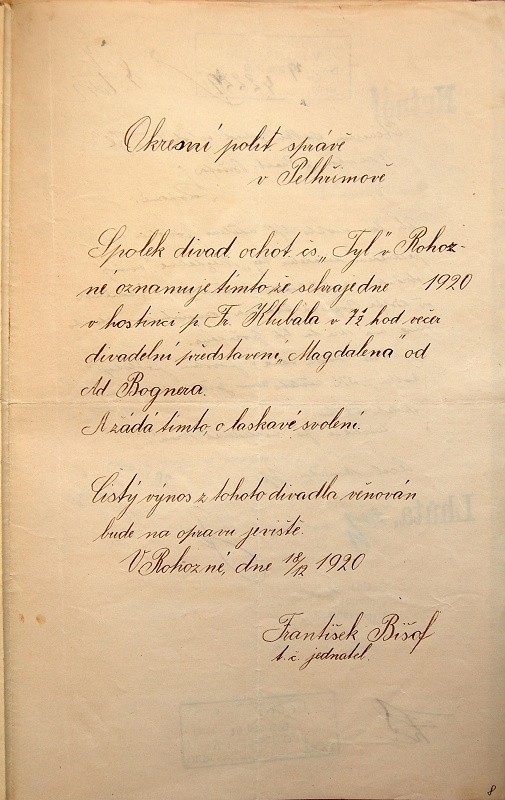 Okresní polit. správě
v Pelhřimově
Spolek divad. ochot. čs „Tyl" v Rohoz-
né oznamuje tímto že sehrajedne 1920
v hostinci p. Fr. Klubala v 7½ hod. večer
divadelní představení „Magdalena" od
Ad Bognera.
A žádá tímto, o laskavé svolení.
Čistý výnos z tohoto divadla věnován
bude na opravu jeviště.
V Rohozné, dne 18/12 1920
František Bišof
t. č. jednatel.
8